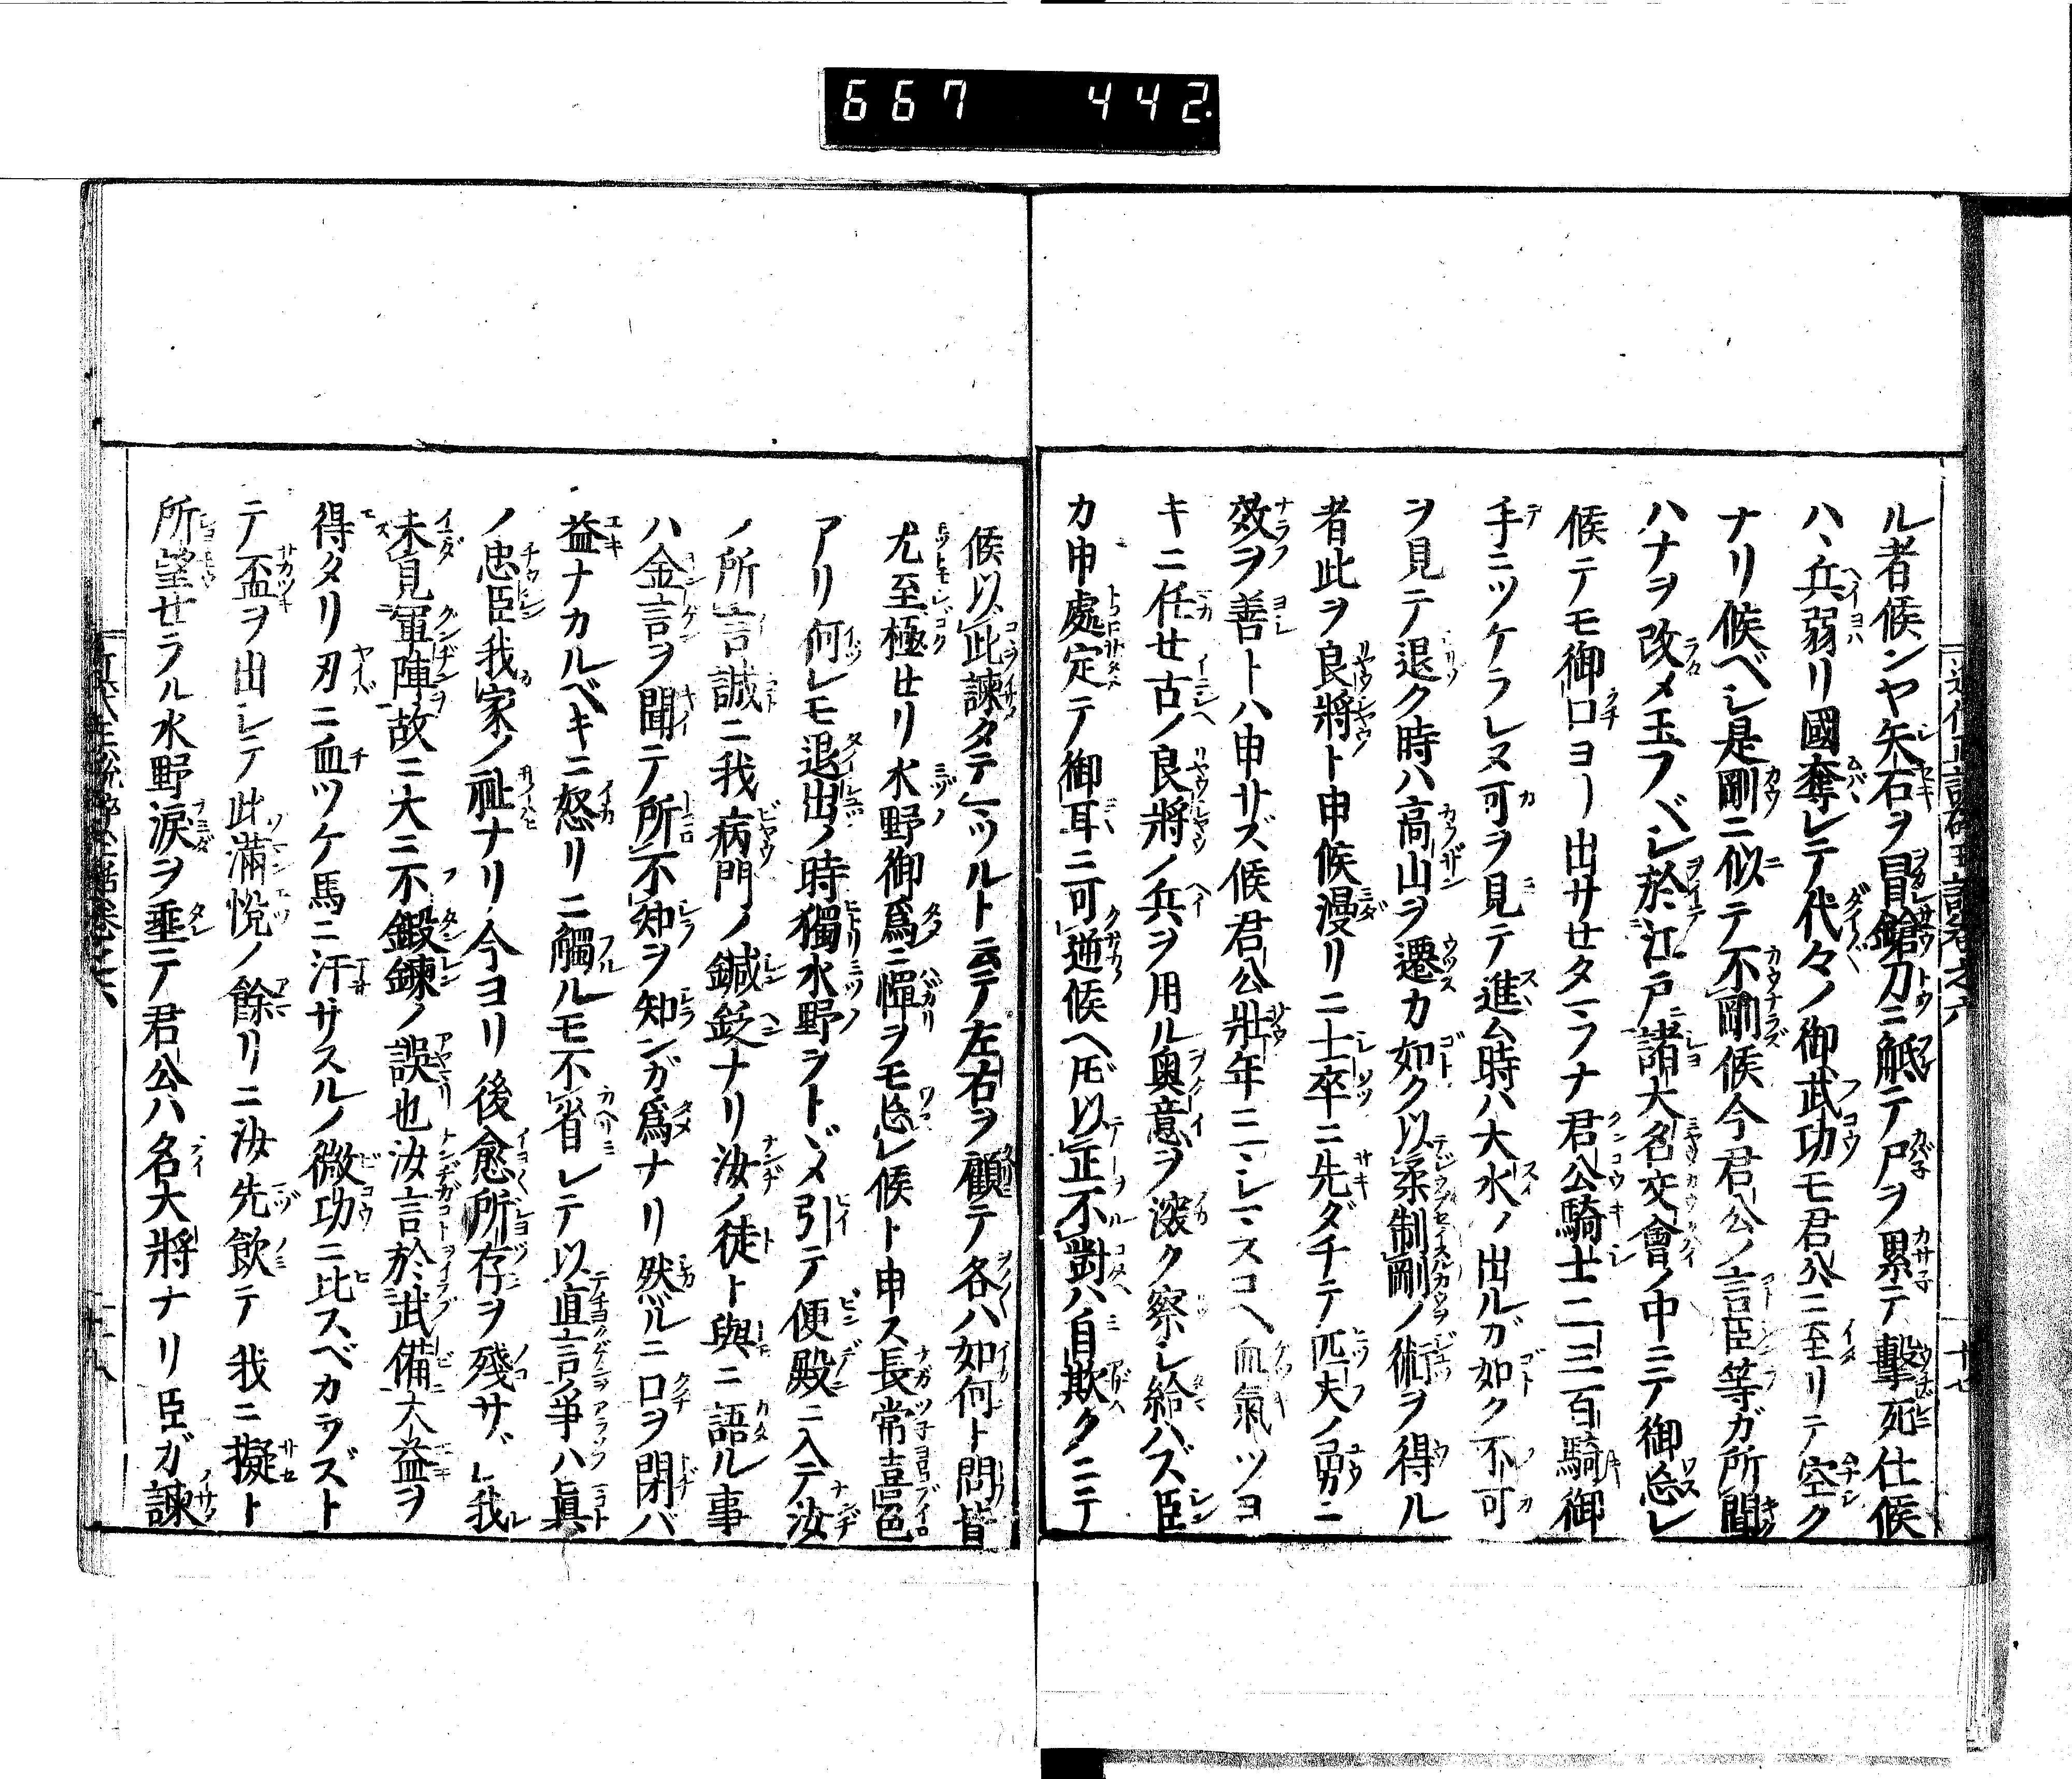 667 442.
ル者候ンヤ矢石ヲ冒鎗刀ニ觝テ尸ヲ累テ擊死仕候
ハヽ兵弱リ國奪レテ代々ノ御武功モ君公ニ至リテ空ク
ナリ候ベシ是剛ニ似テ不剛候今君公ノ言臣等ガ所聞
ハナヲ改メ玉フベシ於江戸諸大名交會ノ中ニテ御忘レ
候テモ御口ヨリ出サセタマフナ君公騎士二三百騎御
手ニツケラレヌ可ヲ見テ進ム時ハ大水ノ出ルガ如ク不可
ヲ見テ退ク時ハ高山ヲ遷カ如ク以柔制剛ノ術ヲ得ル
者此ヲ良將ト申候漫リニ士卒ニ先ダチテ匹夫ノ勇ニ
效ヲ善トハ申サズ候君公壯年ニマシマスコヘ血氣ツヨ
キニ任せ古ノ良將ノ兵ヲ用ル奥意ヲ深ク察シ給ハズ臣
カ申處定テ御耳ニ可逆候ヘ𪜈以正不對ハ自欺クニテ
候以此諫タテマツルト云テ左右ヲ顧テ各ハ如何ト問皆
尤至極せリ水野御爲ニ憚ヲモ忘レ候ト申ス長常喜色
アリ何レモ退出ノ時獨水野ヲトヾメ引テ便殿ニ入テ汝
ノ所言誠ニ我病門ノ鍼鉸ナリ汝ノ徒ト與ニ語ル事
ハ金言ヲ聞テ所不知ヲ知ンガ爲ナリ然ルニ口ヲ閉バ
益ナカルベキニ怒リニ觸ルモ不省シテ以直言爭ハ眞
ノ忠臣我家ノ祉ナリ今ヨリ後愈所存ヲ殘サヾレ我
未見軍陣故ニ大ニ不鍛鍊ノ誤也汝言於武備大益ヲ
得タリ刃ニ血ツケ馬ニ汗サスルノ微功ニ比スベカラズト
テ盃ヲ出シテ此滿悅ノ餘リニ汝先飲テ我ニ擬ト
所望せラル水野淚ヲ垂テ君公ハ名大將ナリ臣ガ諫